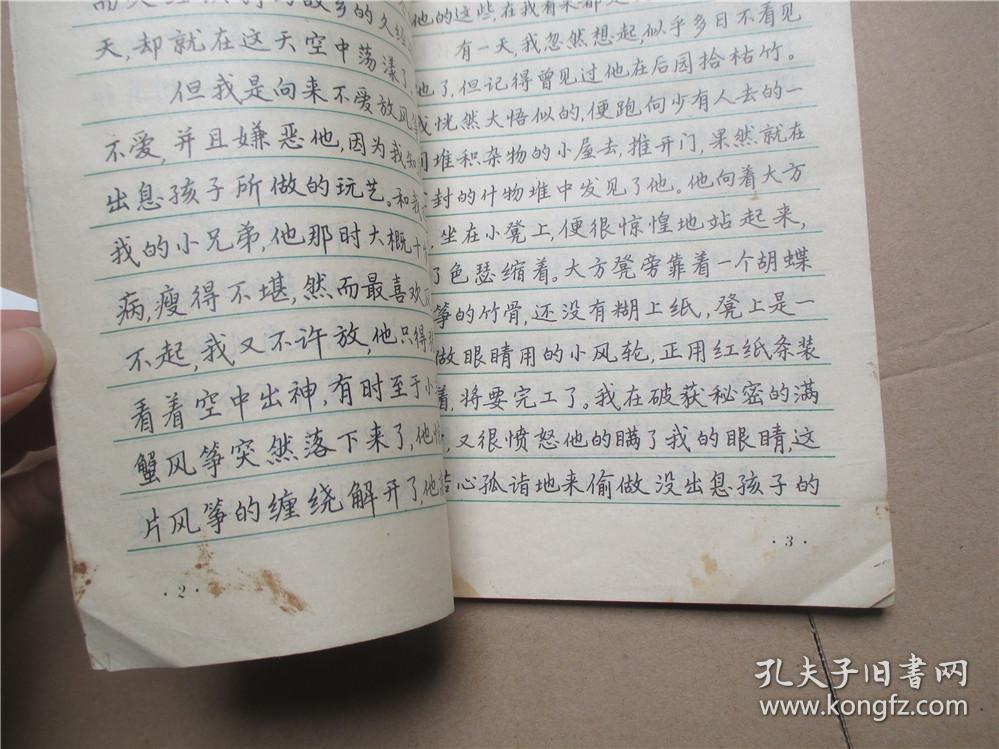 的故乡的久经
天,却就在这天空中荡漾了
但我是向来不爱放风
不爱,并且嫌恶他,因为我知
出息孩子所做的玩艺。和我
我的小兄弟,他那时大概十
病,瘦得不堪,然而最喜欢
不起,我又不许放,他只得
看着空中出神,有时至于小
蟹风筝突然落下来了,他
片风筝的缠绕解开了,他
·2·
他的这些,在我看来都是
有一天,我忽然想起,似乎多日不看见
他了,但记得曾见过他在后园拾枯竹。
我恍然大悟似的,便跑向少有人去的一
间堆积杂物的小屋去,推开门,果然就在
封的什物堆中发见了他。他向着大方
坐在小凳上,便很惊惶地站起来,
了色瑟缩着。大方凳旁靠着一个胡蝶
筝的竹骨,还没有糊上纸,凳上是一
做眼睛用的小风轮,正用红纸条装
着,将要完工了。我在破获秘密的满
又很愤怒他的瞒了我的眼睛,这
心孤诣地来偷做没出息孩子的
·3·
孔夫子旧书网
www.kongfz.com